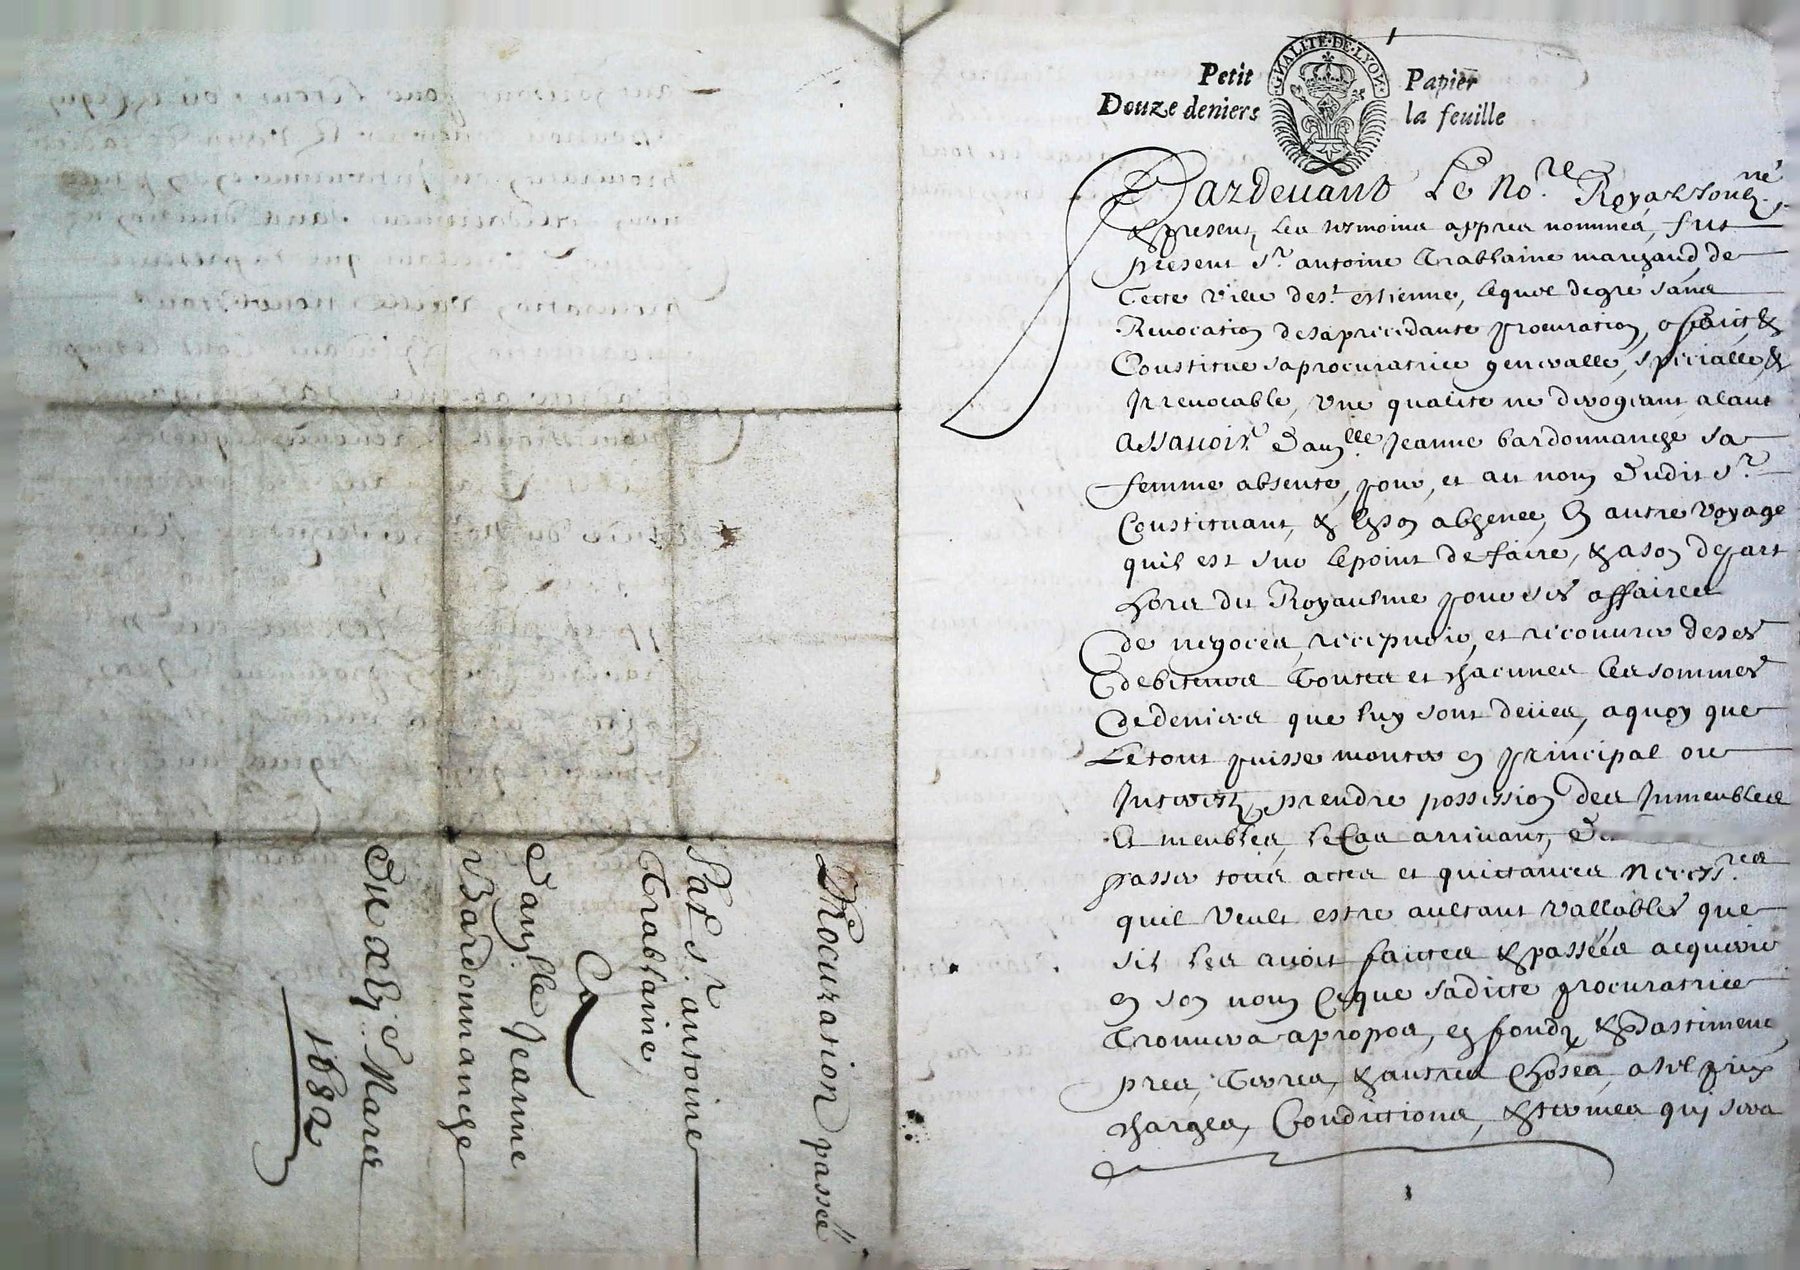 GNALITE·DE·LYON
Petit Papier
Douze deniers la feuille
Pardevant Le No.re Royal soubz.né
& present, les tesmoins appres nommés, fut
present Sr. antoine Trablaine marchand, de
Cette ville de st. estienne, lequel de gré sans
Revocation de sa precedante procuration, a fait &
Constitue sa procuratrice generalle, specialle, &
Irrevocable, une qualité ne derogeant a lautre
Assavoir dam.lle Jeanne bardonnanche sa
femme absente, pour, et au nom dudit Sr.
Constituant, & en son absence, en autre voyage
quil est sur le point de faire, & a son depart
hors du Royaulme pour ses affaires
de negoces, recepvoir, et recouvrer de ses
debiteurs toutes et chacunes les sommes
de deniers que luy sont deües, a quoy que
Le tout puisse monter en principal ou
Interestz, prendre possession des Immeubles
Et meubles, le Cas arrivant,
passer tous actes et quictances necess.res
quil veult estre aultant vallables que
sil les avoit faictes & passéés acquerir
en son nom Ce que sadicte procuratrice
Trouvera a propos, en fondz & bastiment
pres, Terres, & autres choses, a tel prix
charges, Conditions, & termes qui sera
Procuration passeé
Par Sr. antoine
Trablaine
a
Dam.lle Jeanne
Bardonnanche
Du Mars
1682